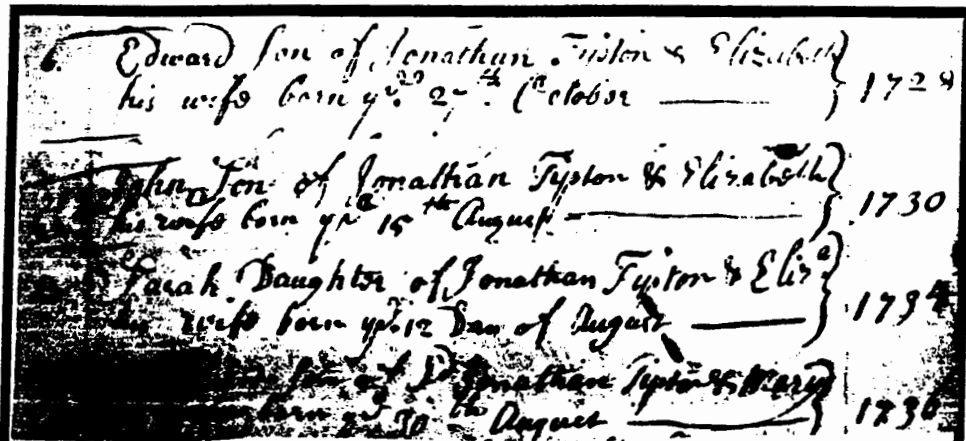 6. Edward Son of Jonathan Tipton & Elizabeth
his wife born ye 27th October 1728
John Son of Jonathan Tipton & Elizabeth
his wife born ye 15th August 1730
Sarah Daughter of Jonathan Tipton & Eliza
his wife born ye 12 Day of August 1734
Son of Jonathan Tipton & Mary
born ye 30th August 1736